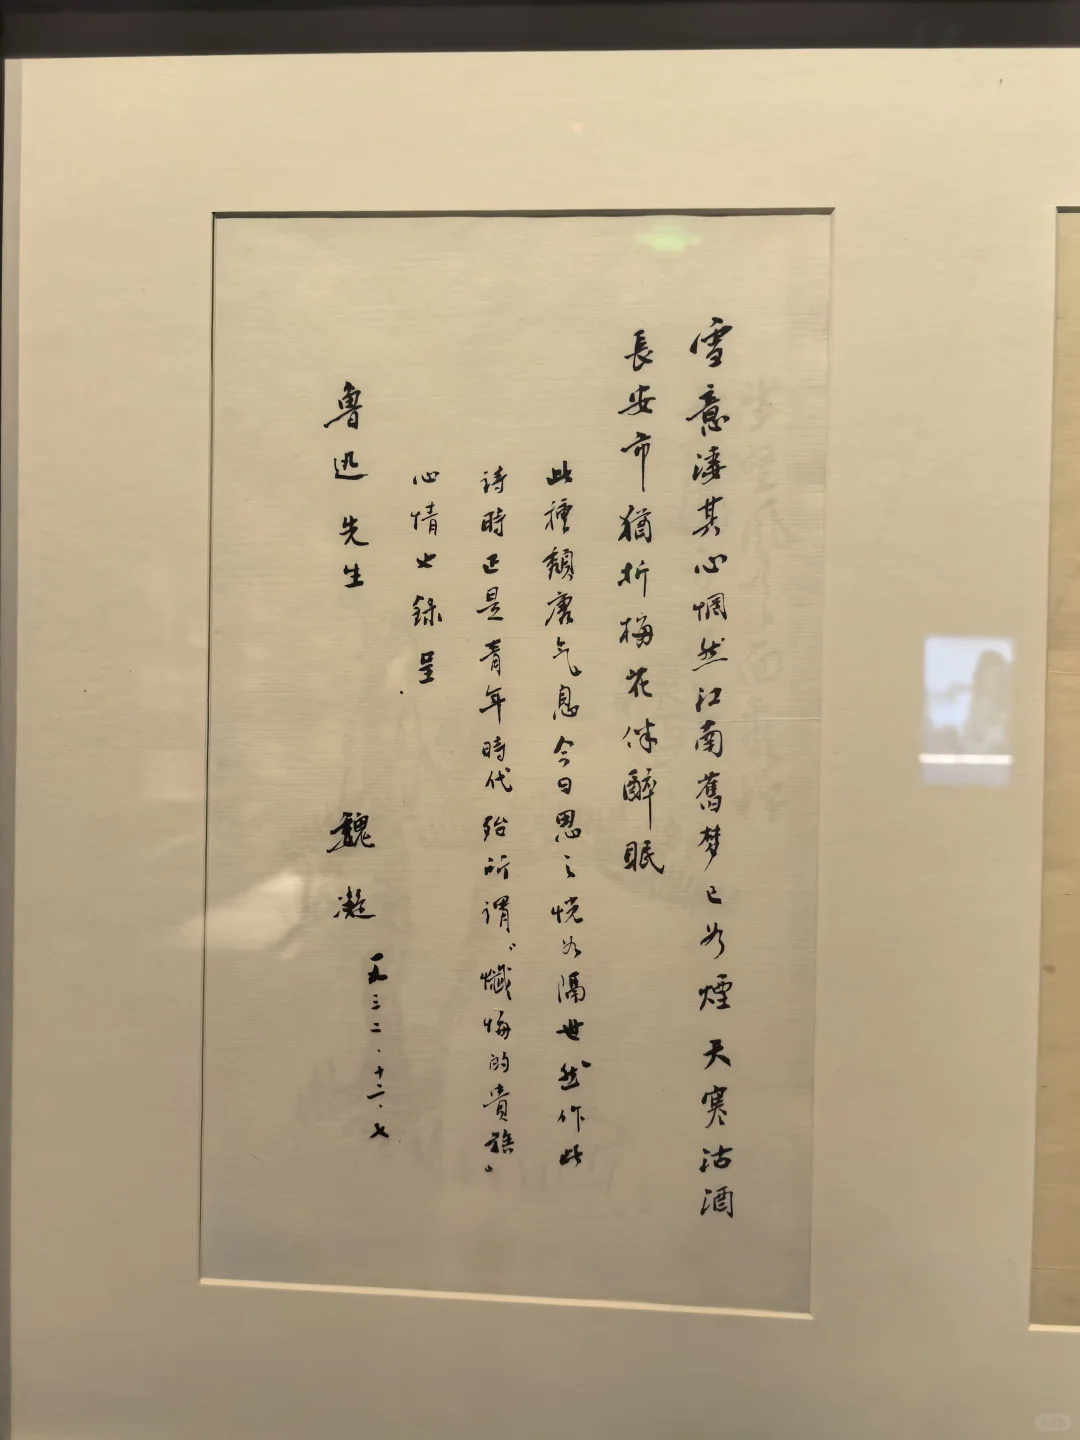 雪意凄其心惘然江南舊梦已如煙天寒沽酒
長安市猶折梅花伴醉眠
此種頹唐气息今日思之恍如隔世然作此
詩時正是青年時代殆所謂“懺悔的貴族”
心情也錄呈
魯迅先生
魏凝
一九三二、十二、七